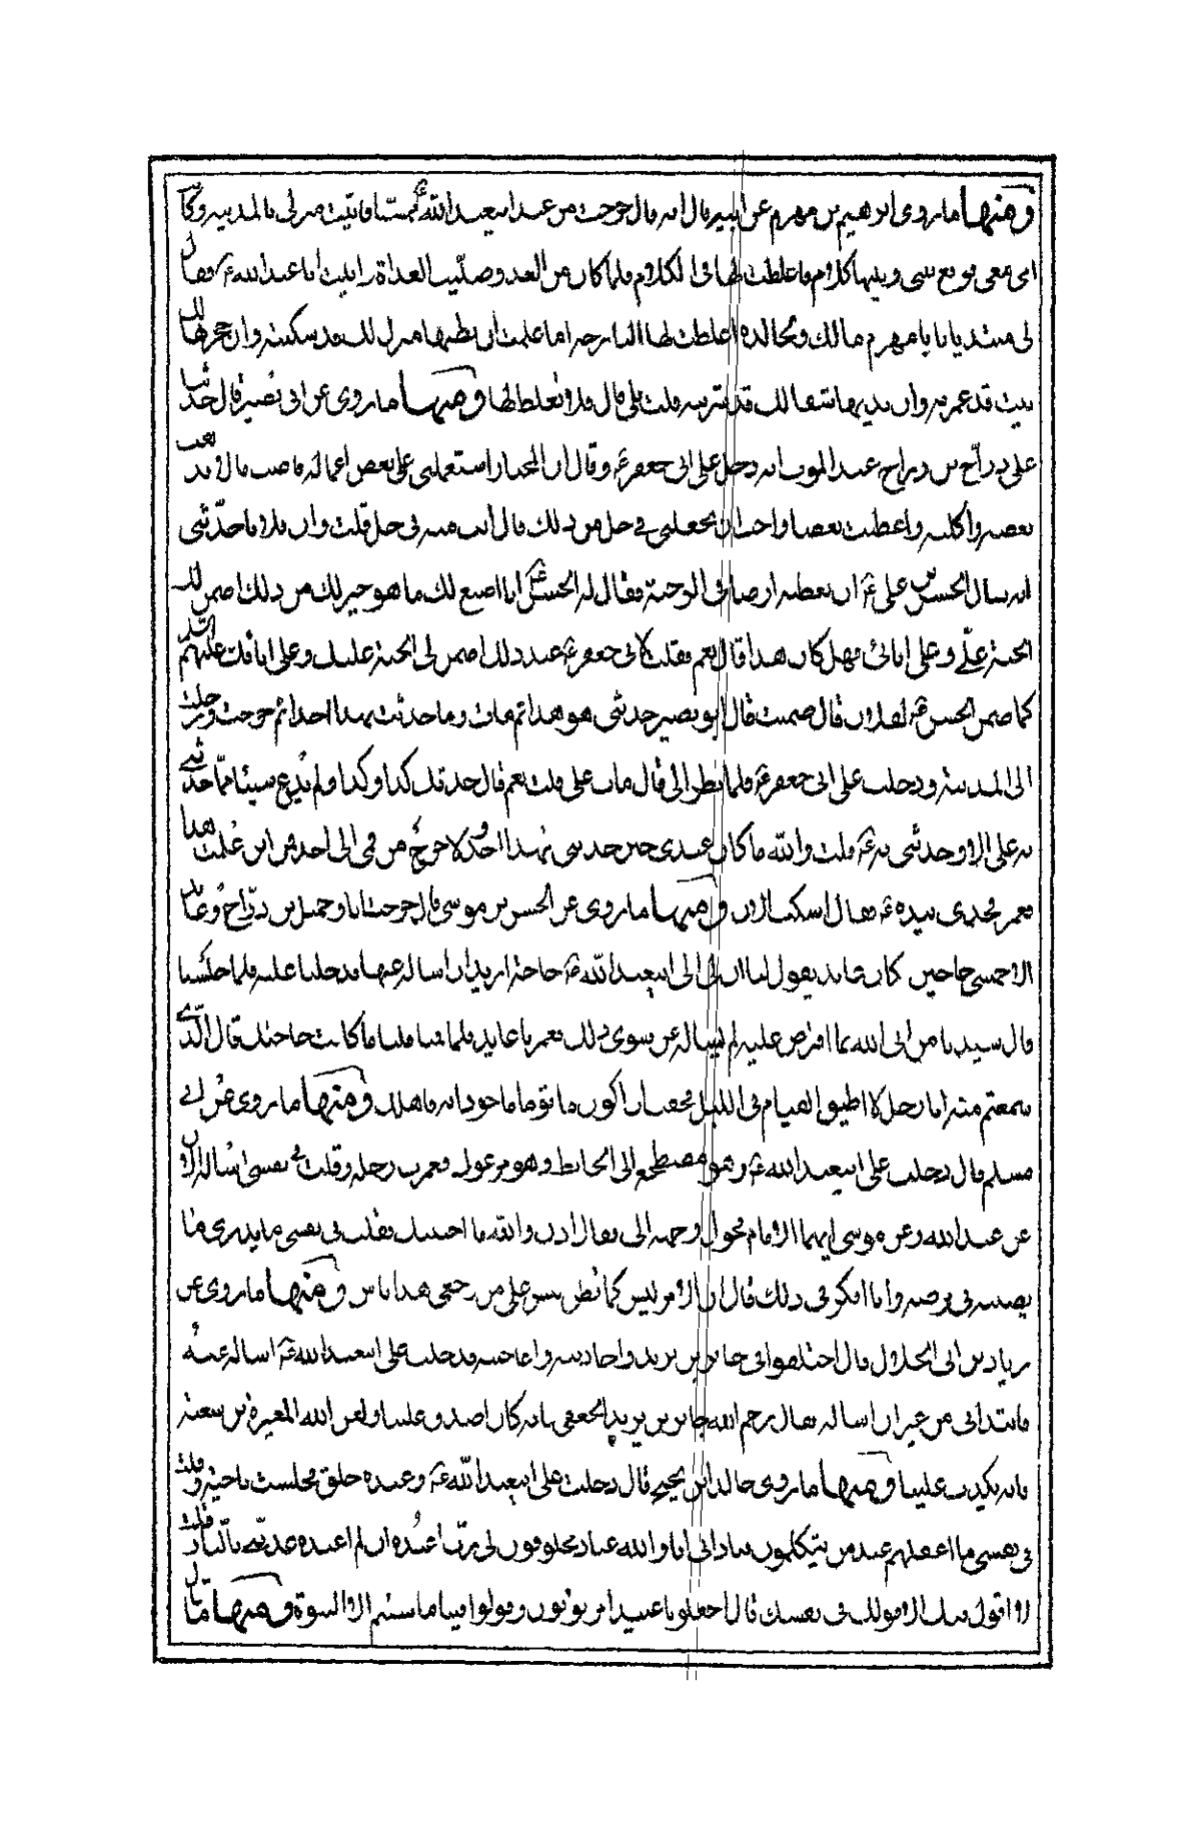 ومنها ما روى ابرهيم بن مهزم عن ابيه قال انه قال خرجت من عند ابيعبد الله ع ممسيا فاتيت منزلى بالمدينه وكانت
امى معى فوقع بينى وبينها كلام فاغلظت لها فى الكلام فلما كان من الغد وصليت الغداة واتيت ابا عبد الله ع فقال
لى مبتديا يابا مهزم مالك ولخالده اغلظت لها البارحه اما علمت ان بطنها منزل لك قد سكنته وان حجرها لك
بيت قد عمرته وان ثديها سقا لك قد شربته قلت بلى قال فلا تغلظ لها ومنها ما روى عن ابى بصير قال حدثنا
على بن دراج عند الموت انه دخل على ابى جعفر ع وقال ان المختار استعملنى على بعض اعماله فاصبت مالا فذهب
بعضه وأكلت واعطيت بعضا واحب ان تجعلنى فى حل من ذلك قال انت منه فى حل فقلت وان فلانا حدثنى
انه سال الحسن بن على ع ان يعطيه ارضا فى الرحبة فقال له الحسن ع انا اصنع لك ما هو خير لك من ذلك اضمن لك
الجنة علىّ وعلى ابائى فهل كان هذا قال نعم فقلت لابى جعفر ع عند ذلك اضمن لى الجنة عليك وعلى ابائك عليهم السلام
كما ضمن الحسن ع لفلان قال ضمنت قال ابو بصير حدثنى هو هذا ثم مات وما حدثت بهذا احدا ثم خرجت ودخلت
الى المدينه ودخلت على ابى جعفر ع فلما نظر الى قال مات على قلت نعم قال حدثك كذا وكذا ولم يدع شيئا مما حدثنى
به على الا وحدثنى به ع فقلت والله ما كان عندى حين حدثنى بهذا احد ولا خرج من فمى الى احد فمن اين علمت هذا
فغمز فخذى بيده ع فقال اسكت الان ومنها ما روى عن الحسن بن موسى قال خرجت انا وجميل بن دراج وعائذ
الاحمسى حاجين كان عايذ يقول لنا ان لى الى ابيعبد الله ع حاجة اريد ان اساله عنها فدخلنا عليه فلما جلسنا
قال مبتديا من اتى الله بما افترض عليه لم يساله عن سوى ذلك فغمزنا عايذ فلما قمنا قلنا ما كانت حاجتك قال الذى
سمعتم منه انا رجل لا اطيق القيام فى الليل فخفت ان اكون ماثوما ماخوذا به فاهلك ومنها ما روى عن ابى
مسلم قال دخلت على ابيعبد الله ع وهو مضطجع الى الحائط وهو موعوك فغمزت رجله وقلت فى نفسى اساله الان
عن عبد الله وعن موسى ايهما الامام فحول وجهه الى وقال اذن والله ما اجيبك فقلت فى نفسى ما يدرى ما
يصيبه فى مرضه وانا افكر فى ذلك فقال ان الامر ليس كما تظن ليس على من وجعى هذا باس ومنها ما روى عن
زياد بن ابى الحلال قال اختلفوا فى جابر بن يزيد واحاديثه واعاجيبه فدخلت على ابيعبد الله ع اساله عنه
فابتدانى من غير ان اساله فقال رحم الله جابر بن يزيد الجعفى فانه كان يصدق علينا ولعن الله المغيرة بن سعيد
فانه يكذب علينا ومنها ما روى خالد بن نجيح قال دخلت على ابيعبد الله ع وعنده خلق فجلست ناحية وقلت
فى نفسى ما اغفلهم عند من يتكلمون فنادانى انا والله عباد مخلوقون لى رب اعبده ان لم اعبده عذبنى بالنار قلت
لا اقول فيك الا قولك فى نفسك قال اجعلونا عبيدا مربوبون وقولوا فينا ما شئتم الا النبوة ومنها ما قال